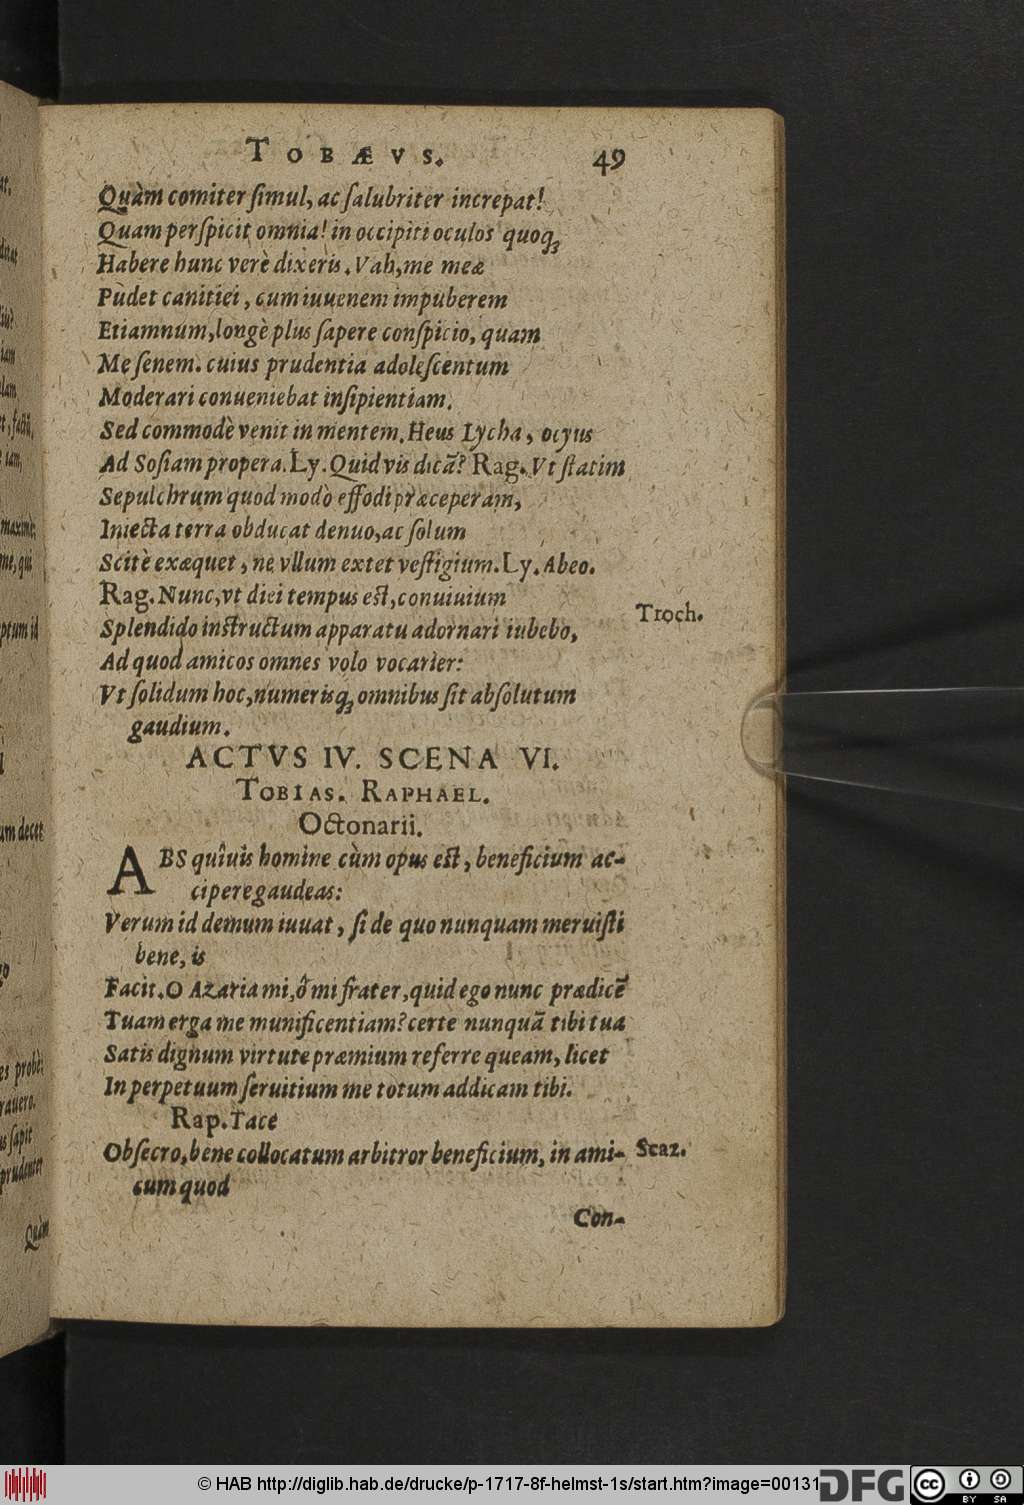 TOBÆVS. 49
Quàm comiter ſimul, ac ſalubriter increpat!
Quam perſpicit omnia! in occipiti oculos quoqꝫ
Habere hunc verè dixeris. Vah, me meæ
Pudet canitiei, cum iuuenem impuberem
Etiamnum, longè plus ſapere conſpicio, quam
Me ſenem. cuius prudentia adoleſcentum
Moderari conueniebat inſipientiam.
Sed commodè venit in mentem. Heus Lycha, ocyus
Ad Soſiam propera. Ly. Quid vis dicā? Rag. Vt ſtatim
Sepulchrum quod modò effodi præceperam,
Iniecta terra obducat denuo, ac ſolum
Scitè exæquet, ne vllum extet veſtigium. Ly. Abeo.
Rag. Nunc, vt diei tempus eſt, conuiuium
Troch.
Splendido inſtructum apparatu adornari iubebo,
Ad quod amicos omnes volo vocarier:
Vt ſolidum hoc, numerisqꝫ omnibus ſit abſolutum
gaudium.
ACTVS IV. SCENA VI.
TOBIAS. RAPHAEL.
Octonarii.
ABS quîuis homine cùm opus eſt, beneficium ac-
cipere gaudeas:
Verum id demum iuuat, ſi de quo nunquam meruiſti
bene, is
Facit. O Azaria mi, ô mi frater, quid ego nunc prædicē
Tuam erga me munificentiam? certe nunquā tibi tua
Satis dignum virtute præmium referre queam, licet
In perpetuum ſeruitium me totum addicam tibi.
Rap. Tace
Obſecro, bene collocatum arbitror beneficium, in ami- Scaz.
cum quod
Con-
© HAB http://diglib.hab.de/drucke/p-1717-8f-helmst-1s/start.htm?image=00131
DFG
cc BY SA